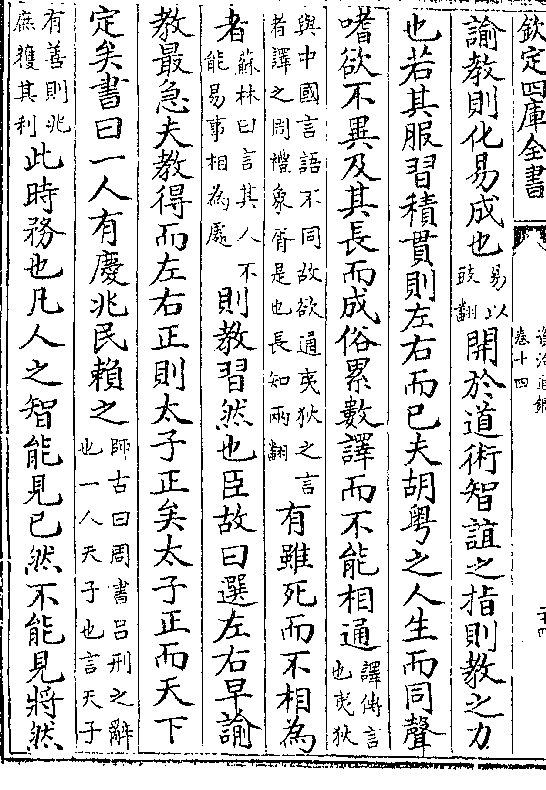 欽定四庫全書
資治通鑑
卷十四
諭教則化易成也易以豉翻開於道術智誼之指則教之力
也若其服習積貫則左右而已夫胡粵之人生而同聲
嗜欲不異及其長而成俗累數譯而不能相通譯傳言也夷狄
與中國言語不同故欲通夷狄之言者譯之周禮象胥是也長知兩翻有雖死而不相為
者蘇林曰言其人不能易事相為處則教習然也臣故曰選左右早諭
教最急夫教得而左右正則太子正矣太子正而天下
定矣書曰一人有慶兆民賴之師古曰周書呂刑之辭也一人天子也言天子
有善則兆庶獲其利此時務也凡人之智能見已然不能見將然